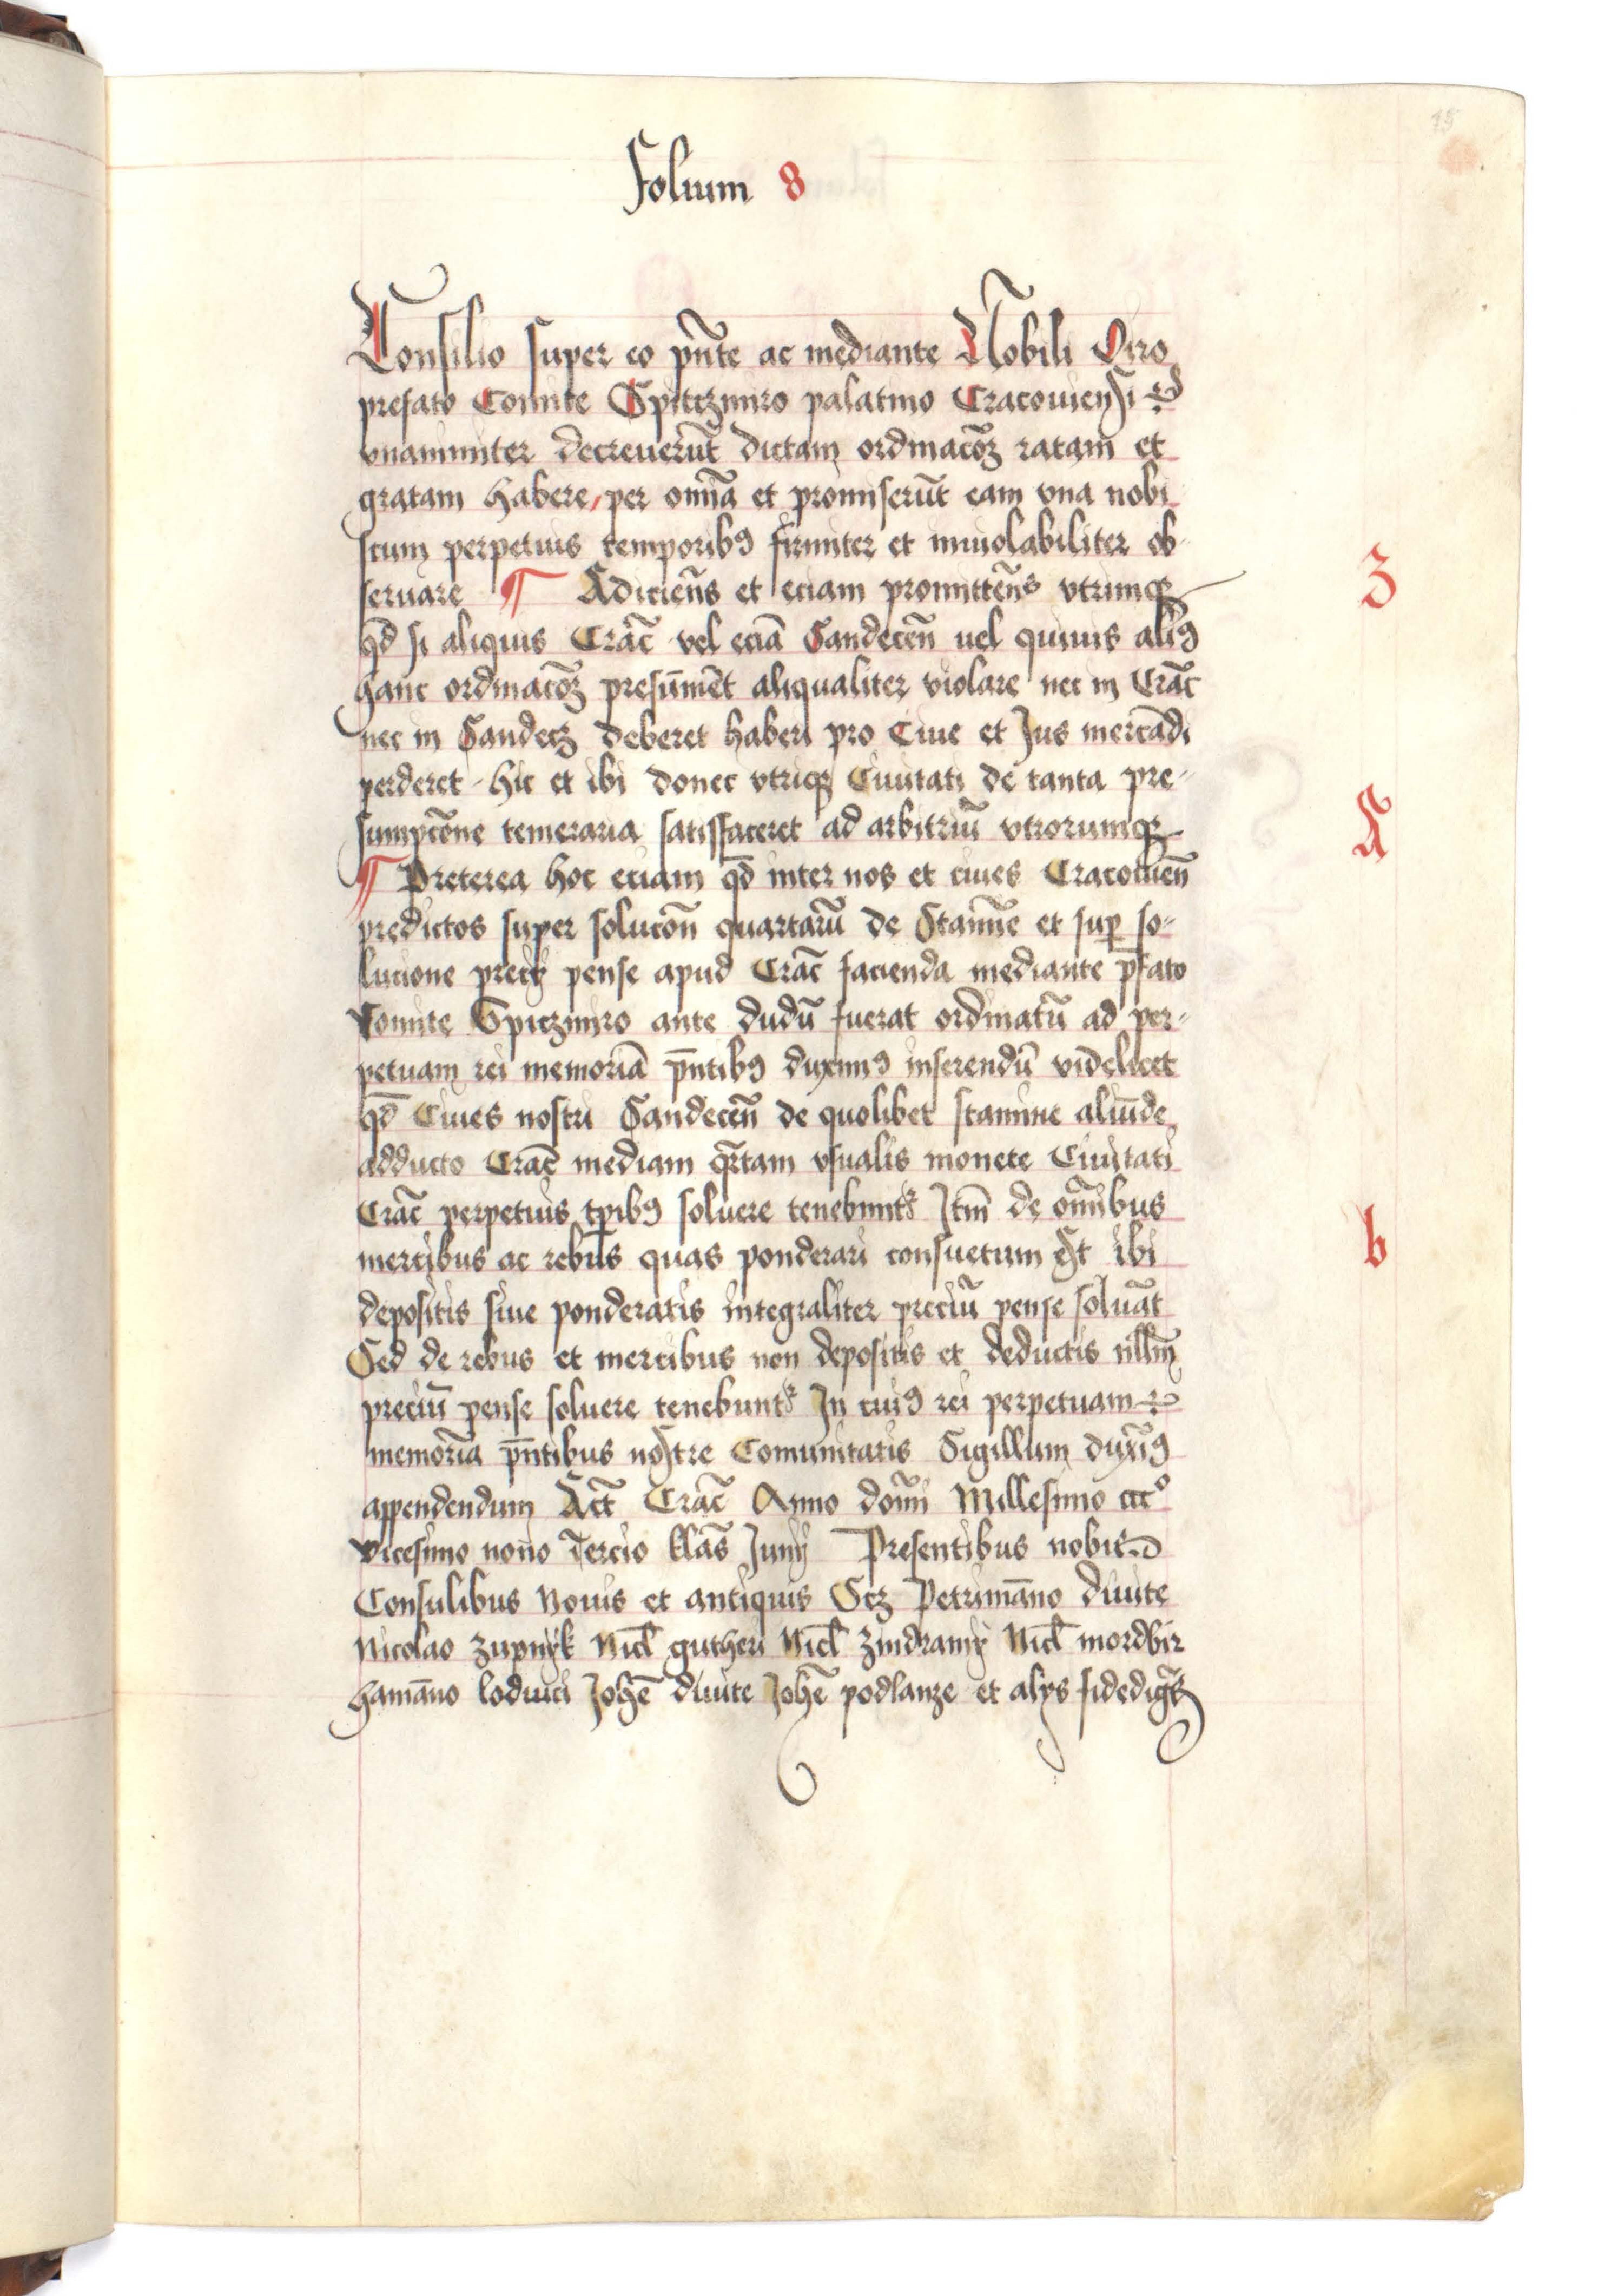 Folium 8
Consilio super eo pn̄te ac mediante Nobili Viro
prefato Comite Spitczmiro palatino Cracouiensi
vnanimiter decreuerūt dictam ordinacōꝫ ratam et
gratam habere, per omīa et promiserūt eam vna nobi
scum perpetuis temporibꝰ firmiter et inuiolabiliter ob
seruare ¶ Adicien̄s et eciam promitten̄s vtrimqꝫ
qd̄ si aliquis Crac̄ vel eciā Sandecen̄ uel quiuis aliꝰ
hanc ordinacōꝫ presūmēt aliqualiter violare nec in Crac̄
nec in Sandecz deberet haberi pro Ciue et Jus mercādi
perderet hic et ibi donec vtriqꝫ Ciuitati de tanta pre-
sumpcōne temeraria satisfaceret ad arbitriū vtrorumqꝫ
¶ Preterea hoc eciam qd̄ inter nos et ciues Cracouien̄
predictos super solucōn quartarū de Stamīne et suꝑ so-
lucione precij pense apud Crac̄ facienda mediante p̄fato
Comite Spitzmiro ante dudū fuerat ordinatū ad per-
petuam rei memoriā pn̄tibꝰ duximꝰ inserendū videlicet
qd̄ Ciues nostri Sandecen̄ de quolibet stamine aliūde
adducto Crac̄ mediam qrtam vsualis monete Ciuitati
Crac̄ perpetuis tꝑibꝰ soluere tenebunt᷑ Jtm̄ de om̄ibus
mercibus ac rebus quas ponderari consuetum est ibi
depositis siue ponderatis integraliter preciū pense soluāt
Sed de rebus et mercibus non depositis et deductis nllm̄
preciū pense soluere tenebunt᷑ Jn cuiꝰ rei perpetuam
memoria pn̄tibus nostre Comunitatis Sigillum duxīꝰ
appendendum Act̄ Crac̄ Anno domī Millesimo cccº
vicesimo nono Tercio klās Junij Presentibus nobis
Consulibus Nouis et antiquis Scz Petrimāno diuite
Nicolao zupnyk Nicl̄ gutheri Nicl̄ zindramy Nicl̄ mordbir
hamāno lodwici Johē diuite Johē podlanze et alys fidedigs̄
3
A
b